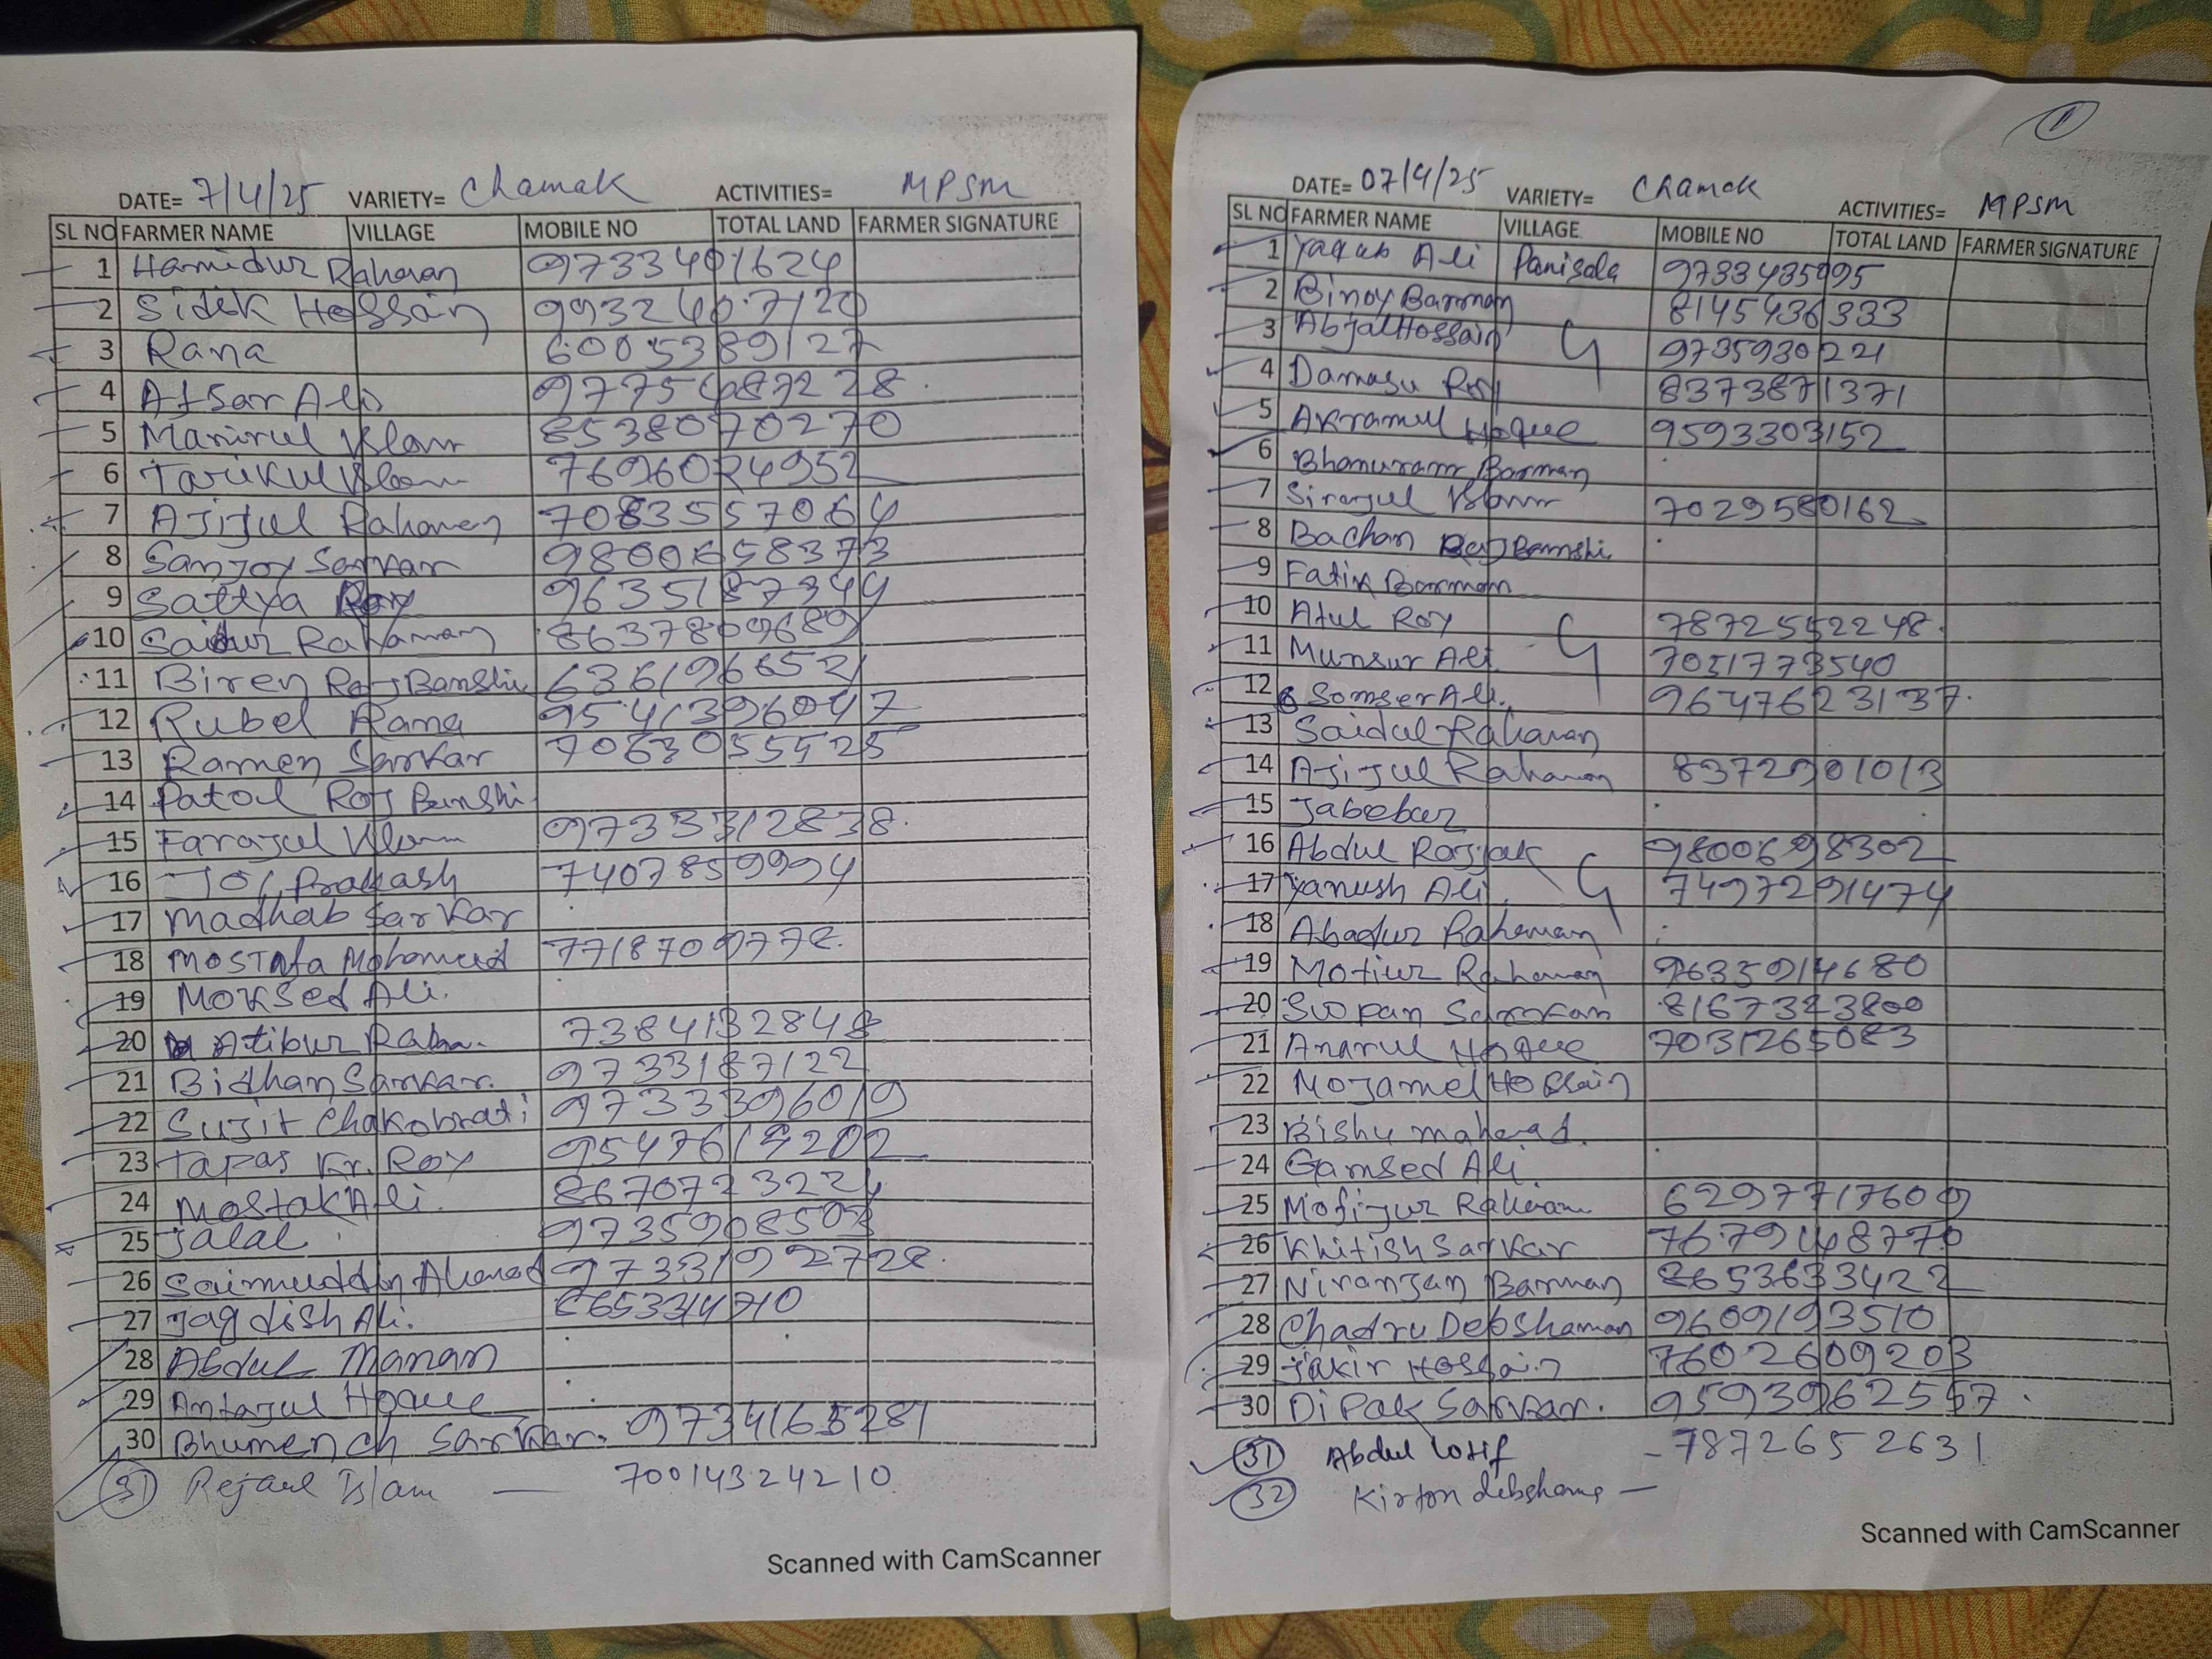 DATE= 7/4/25 VARIETY= Chamak ACTIVITIES= MPSM
SL NO FARMER NAME VILLAGE MOBILE NO TOTAL LAND FARMER SIGNATURE
1 Hamidur Rahaman 9733401624
2 Sidik Hossain 9932407120
3 Rana 6005389127
4 Afsar Ali 9775487228
5 Manirul Islam 8538070270
6 Tarikul Islam 7696024952
7 Ajijul Rahaman 7083557064
8 Sanjoy Sarkar 9800658373
9 Sattya Roy 9635187344
10 Saidur Rahaman 8637809689
11 Biren RajBanshi 6361966521
12 Rubel Rana 9541396047
13 Ramen Sarkar 7063055525
14 Patol Raj Banshi
15 Farajul Islam 9733312838
16 Joy Prakash 7407859994
17 Madhab Sarkar
18 Mostafa Mohamud 7718709778
19 Moksed Ali.
20 Atibur Raha. 7384132848
21 Bidhan Sarkar. 9733187122
22 Sujit Chakobrati 9733396019
23 Tapas Kr. Roy 9547619202
24 Mostak Ali. 8670723224
25 Jalal 9735908503
26 Saimuddin Ahamad 9733192728
27 Jagdish Ali. 8653314710
28 Abdul Manan
29 Antajul Hoque
30 Bhumen ch Sarkar. 9734165281
31 Rejaul Islam — 70014324210
Scanned with CamScanner
1
DATE= 07/4/25 VARIETY= Chamak ACTIVITIES= MPSM
SL NO FARMER NAME VILLAGE MOBILE NO TOTAL LAND FARMER SIGNATURE
1 Yaqub Ali Panisala 9733435995
2 Binoy Barman 8145436333
3 Abjal Hossain 9735930221
4 Damasu Roy 8373871371
5 Akramul Hoque 9593303152
6 Bhanuram Barman
7 Sirajul Islam 7029580162
8 Bachan RajBamshi
9 Fatik Barman
10 Atul Roy 7872552248
11 Munsur Ali 7051773540
12 Somser Ali. 9647623137
13 Saidul Rahaman
14 Ajijul Rahaman 8372901013
15 Jabebur
16 Abdul Rajjak 9800698302
17 Yanush Ali 7497291474
18 Abadur Rahaman
19 Motiur Rahaman 9635914680
20 Swopan Sarkar 8167323800
21 Anarul Hoque 7031265083
22 Mojamel Hossain
23 Bishu mahamad.
24 Gamsed Ali
25 Mofijur Rahaman 6297717609
26 Khitish Sarkar 7679148770
27 Niranjan Barman 8653633422
28 Chadru Debshaman 9609193510
29 Jakir Hossain 7602609203
30 DiPak Sarkar. 9593962557
31 Abdul Lotif - 7872652631
32 Kirton debshama —
Scanned with CamScanner